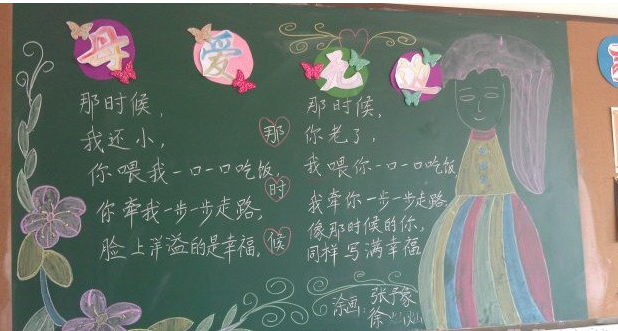 母爱无
那时候,
我还小,
你喂我一口一口吃饭,
你牵我一步一步走路,
脸上洋溢的是幸福。
那
时
候
那时候,
你老了,
我喂你一口一口吃饭
我牵你一步一步走路,
像那时候的你,
同样写满幸福
涂画: 张
徐